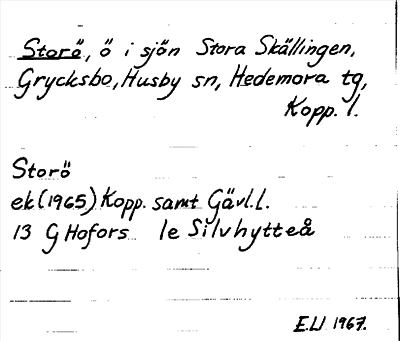 Storö, ö i sjön Stora Skällingen,
Grycksbo, Husby sn, Hedemora tg,
Kopp. l.
Storö
ek (1965) Kopp. samt Gävl. L.
13 G Hofors 1e Silvhytteå
1967.